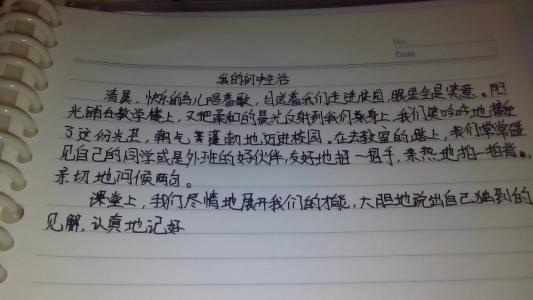 No.
Date
我的初中生活
清晨，快乐的鸟儿唱着歌，目送着我们走进校园，眼里全是笑意。阳
光铺在教学楼上，又把柔和的晨光反射到我们身上，我们笑吟吟地接受
了这份光芒，朝气蓬勃地迈进校园。在去教室的路上，我们常常碰
见自己的同学或是外班的好伙伴，友好地招一招手，亲热地拍一拍肩，
亲切地问候两句。
课堂上，我们尽情地展开我们的才能，大胆地说出自己独到的
见解，认真地记好